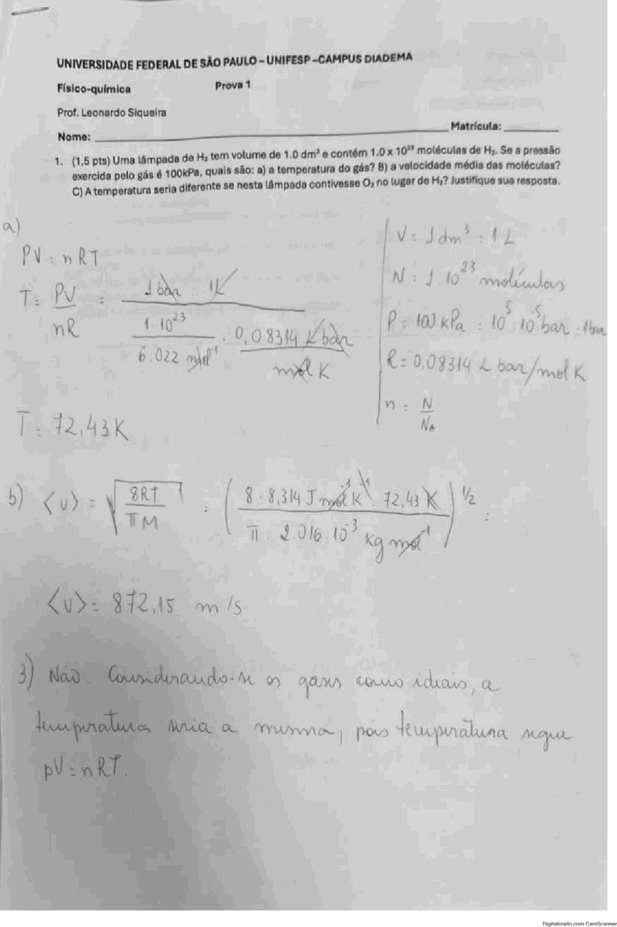 UNIVERSIDADE FEDERAL DE SÃO PAULO – UNIFESP –CAMPUS DIADEMA
Físico-química Prova 1
Prof. Leonardo Siqueira
Nome: Matrícula:
1. (1,5 pts) Uma lâmpada de H₂ tem volume de 1.0 dm³ e contém 1.0 x 10²³ moléculas de H₂. Se a pressão
exercida pelo gás é 100kPa, quais são: a) a temperatura do gás? B) a velocidade média das moléculas?
C) A temperatura seria diferente se nesta lâmpada contivesse O₂ no lugar de H₂? Justifique sua resposta.
a)
PV = nRT
T = PV / nR = 1 bar . 1L / (1·10²³ / 6.022 mol⁻¹ . 0,08314 L bar / mol K)
T = 72,43 K
V = 1 dm³ = 1 L
N = 1.10²³ moléculas
P = 100 kPa = 10⁵ 10⁻⁵ bar = 1 bar
R = 0,08314 L bar/mol K
n = N / N_A
b) <u> = √(8RT / πM) = (8 · 8,314 J mol⁻¹ K⁻¹ 72,43 K / π 2.016 10⁻³ kg mol⁻¹)^1/2 =
<u> = 872,15 m/s
3) Não. Considerando-se os gases como ideais, a
temperatura seria a mesma, pois temperatura segue
pV = nRT.
Digitalizado com CamScanner